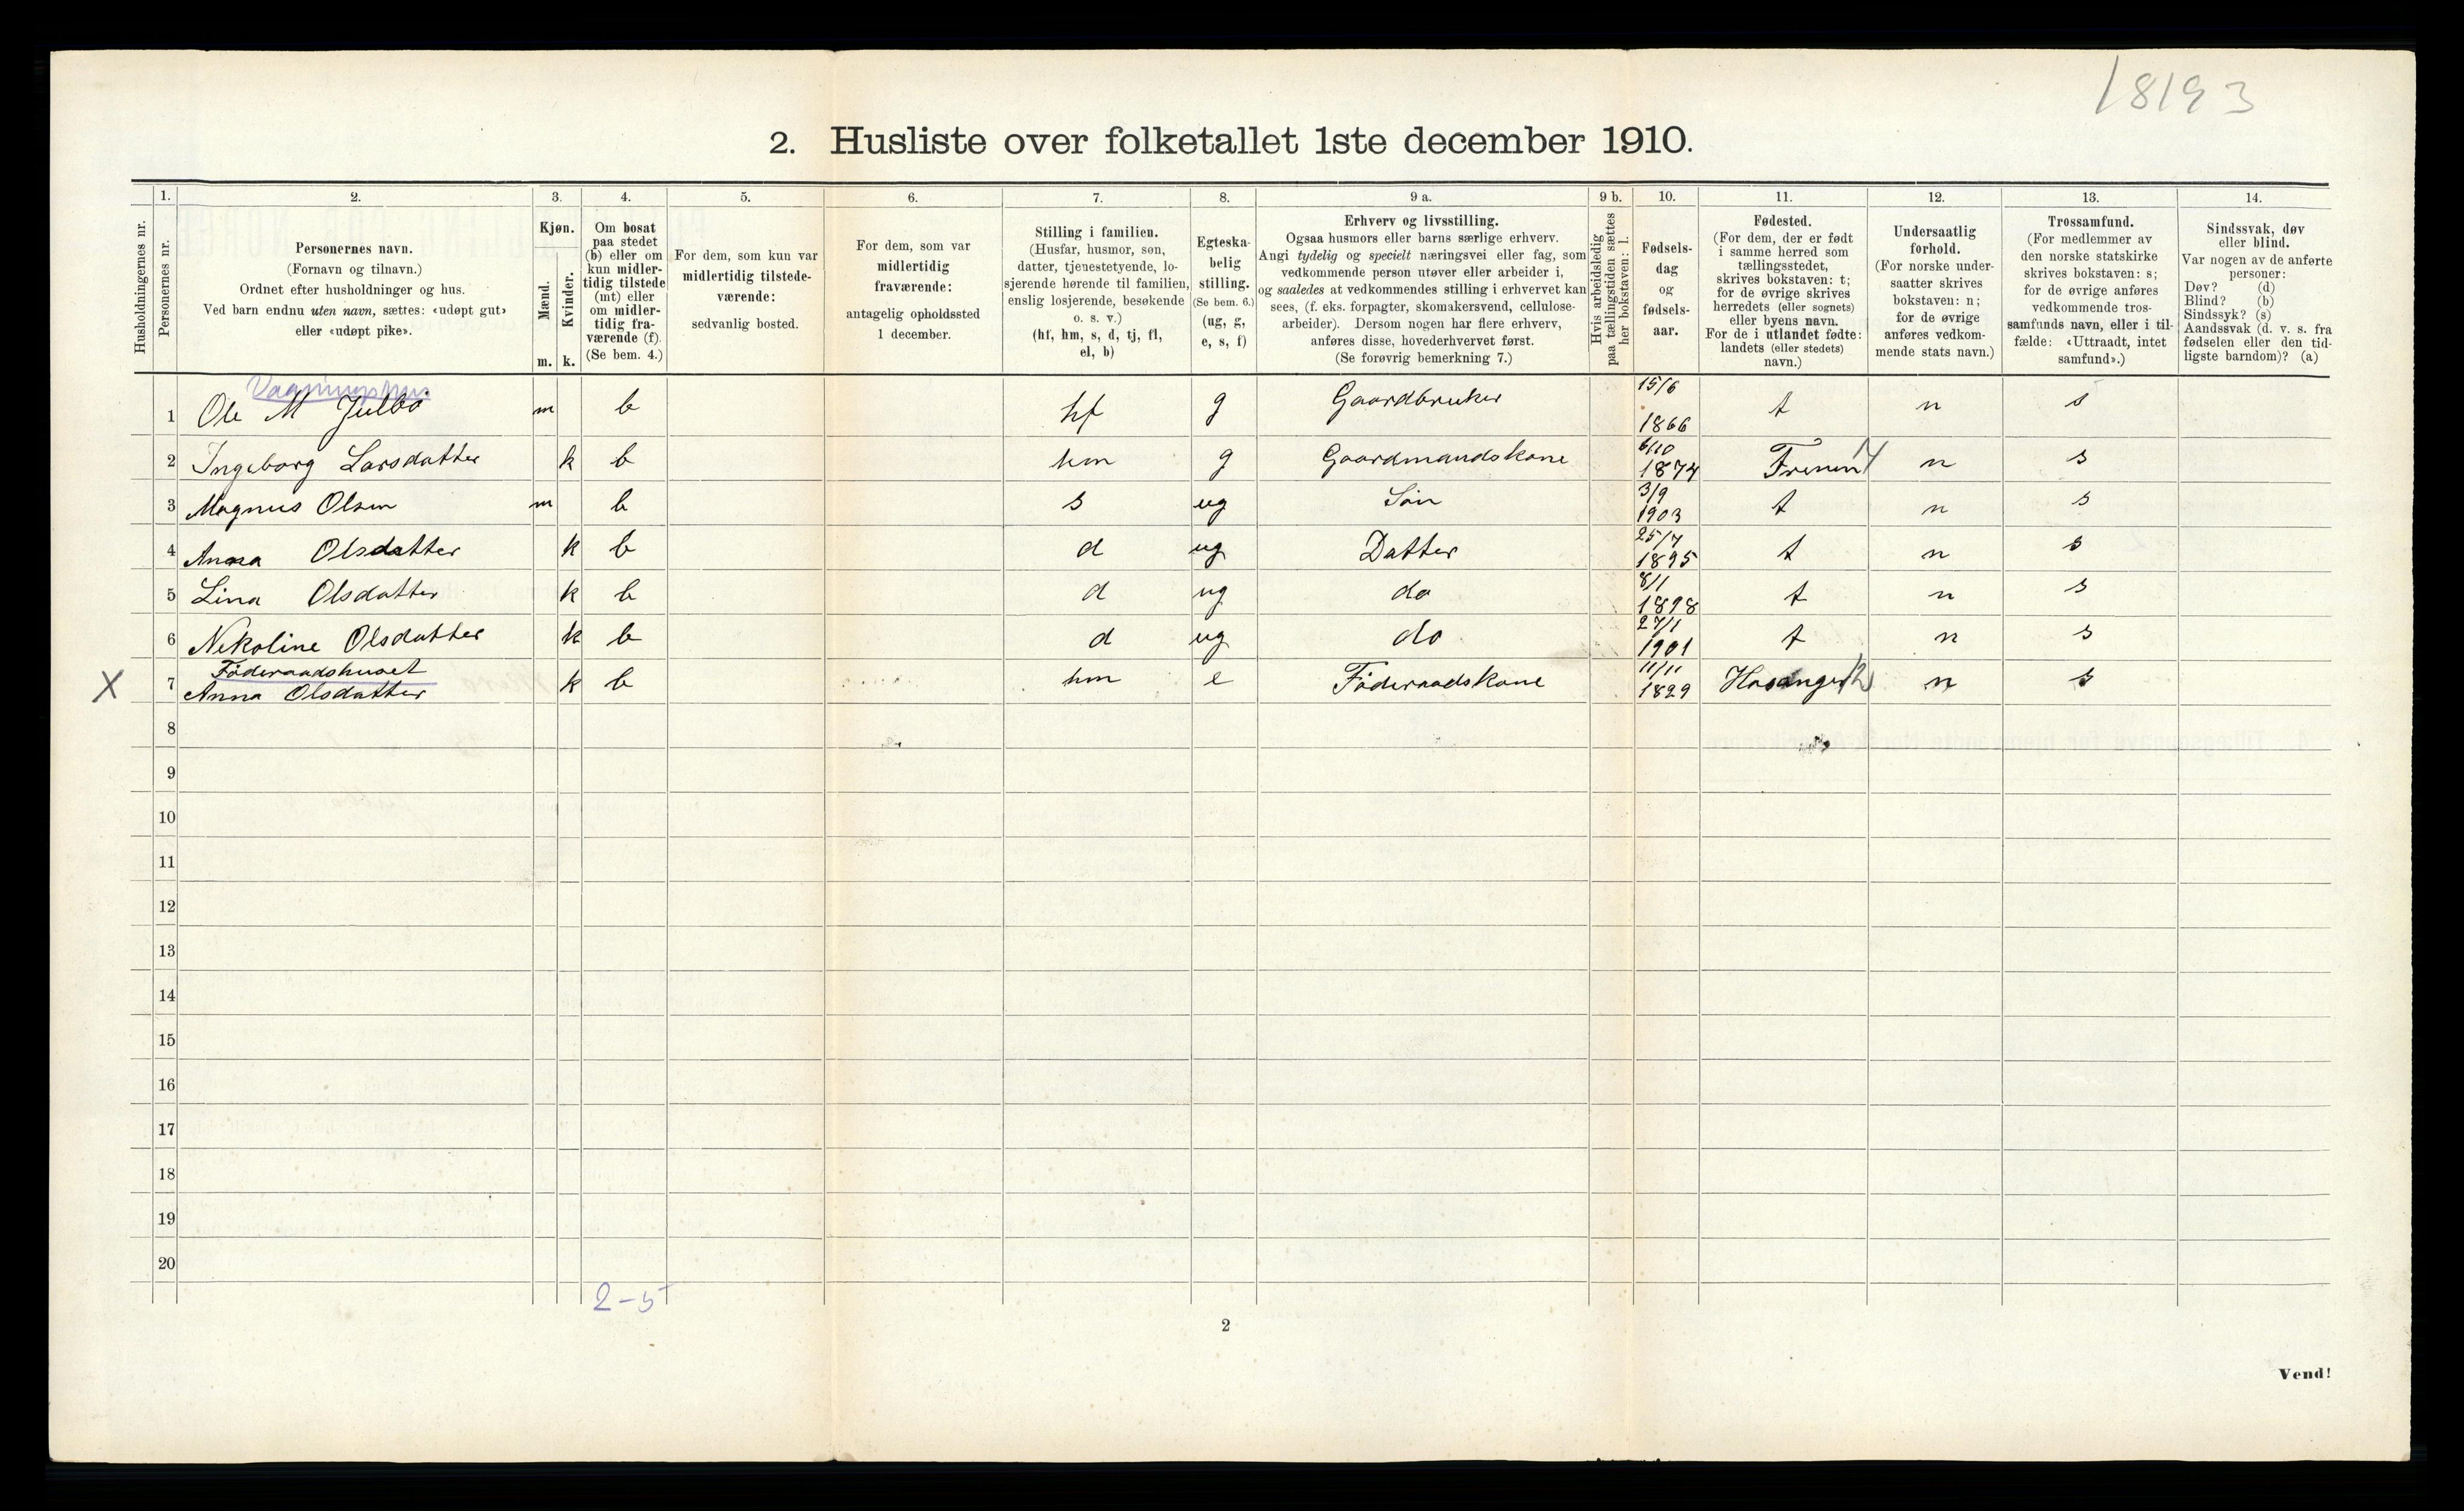 18193
2. Husliste over folketallet 1ste december 1910.
1. 2. 3. 4. 5. 6. 7. 8. 9 a. 9 b. 10. 11. 12. 13. 14.
Husholdningernes nr.
Personernes nr.
Personernes navn.
(Fornavn og tilnavn.)
Ordnet efter husholdninger og hus.
Ved barn endnu uten navn, sættes: «udøpt gut»
eller «udøpt pike».
Kjøn.
Mænd.
Kvinder.
m. k.
Om bosat
paa stedet
(b) eller om
kun midler-
tidig tilstede
(mt) eller
om midler-
tidig fra-
værende (f).
(Se bem. 4.)
For dem, som kun var
midlertidig tilstede-
værende:
sedvanlig bosted.
For dem, som var
midlertidig
fraværende:
antagelig opholdssted
1 december.
Stilling i familien.
(Husfar, husmor, søn,
datter, tjenestetyende, lo-
sjerende hørende til familien,
enslig losjerende, besøkende
o. s. v.)
(hf, hm, s, d, tj, fl,
el, b)
Egteska-
belig
stilling.
(Se bem. 6.)
(ug, g,
e, s, f)
Erhverv og livsstilling.
Ogsaa husmors eller barns særlige erhverv.
Angi tydelig og specielt næringsvei eller fag, som
vedkommende person utøver eller arbeider i,
og saaledes at vedkommendes stilling i erhvervet kan
sees, (f. eks. forpagter, skomakersvend, cellulose-
arbeider). Dersom nogen har flere erhverv,
anføres disse, hovederhvervet først.
(Se forøvrig bemerkning 7.)
Hvis arbeidsledig
paa tællingstiden sættes
her bokstaven: l.
Fødsels-
dag
og
fødsels-
aar.
Fødested.
(For dem, der er født
i samme herred som
tællingsstedet,
skrives bokstaven: t;
for de øvrige skrives
herredets (eller sognets)
eller byens navn.
For de i utlandet fødte:
landets (eller stedets)
navn.)
Undersaatlig
forhold.
(For norske under-
saatter skrives
bokstaven: n;
for de øvrige
anføres vedkom-
mende stats navn.)
Trossamfund.
(For medlemmer av
den norske statskirke
skrives bokstaven: s;
for de øvrige anføres
vedkommende tros-
samfunds navn, eller i til-
fælde: «Uttraadt, intet
samfund».)
Sindssvak, døv
eller blind.
Var nogen av de anførte
personer:
Døv? (d)
Blind? (b)
Sindssyk? (s)
Aandssvak (d. v. s. fra
fødselen eller den tid-
ligste barndom)? (a)
1 Ole M Julbø m b hf g Gaardbruker 15/6 1866 t n s
2 Ingeborg Larsdatter k b hm g Gaardmandskone 6/10 1874 n s
3 Magnus Olsen m b s ug Søn 3/9 1903 t n s
4 Anna Olsdatter k b d ug Datter 25/7 1895 t n s
5 Lina Olsdatter k b d ug do 8/1 1898 t n s
6 Nekoline Olsdatter k b d ug do 27/1 1901 t n s
Föderaadshuset
X 7 Anna Olsdatter k b hm e Föderaadskone 11/11 1829 n s
8
9
10
11
12
13
14
15
16
17
18
19
20
2-5
2
Vend!